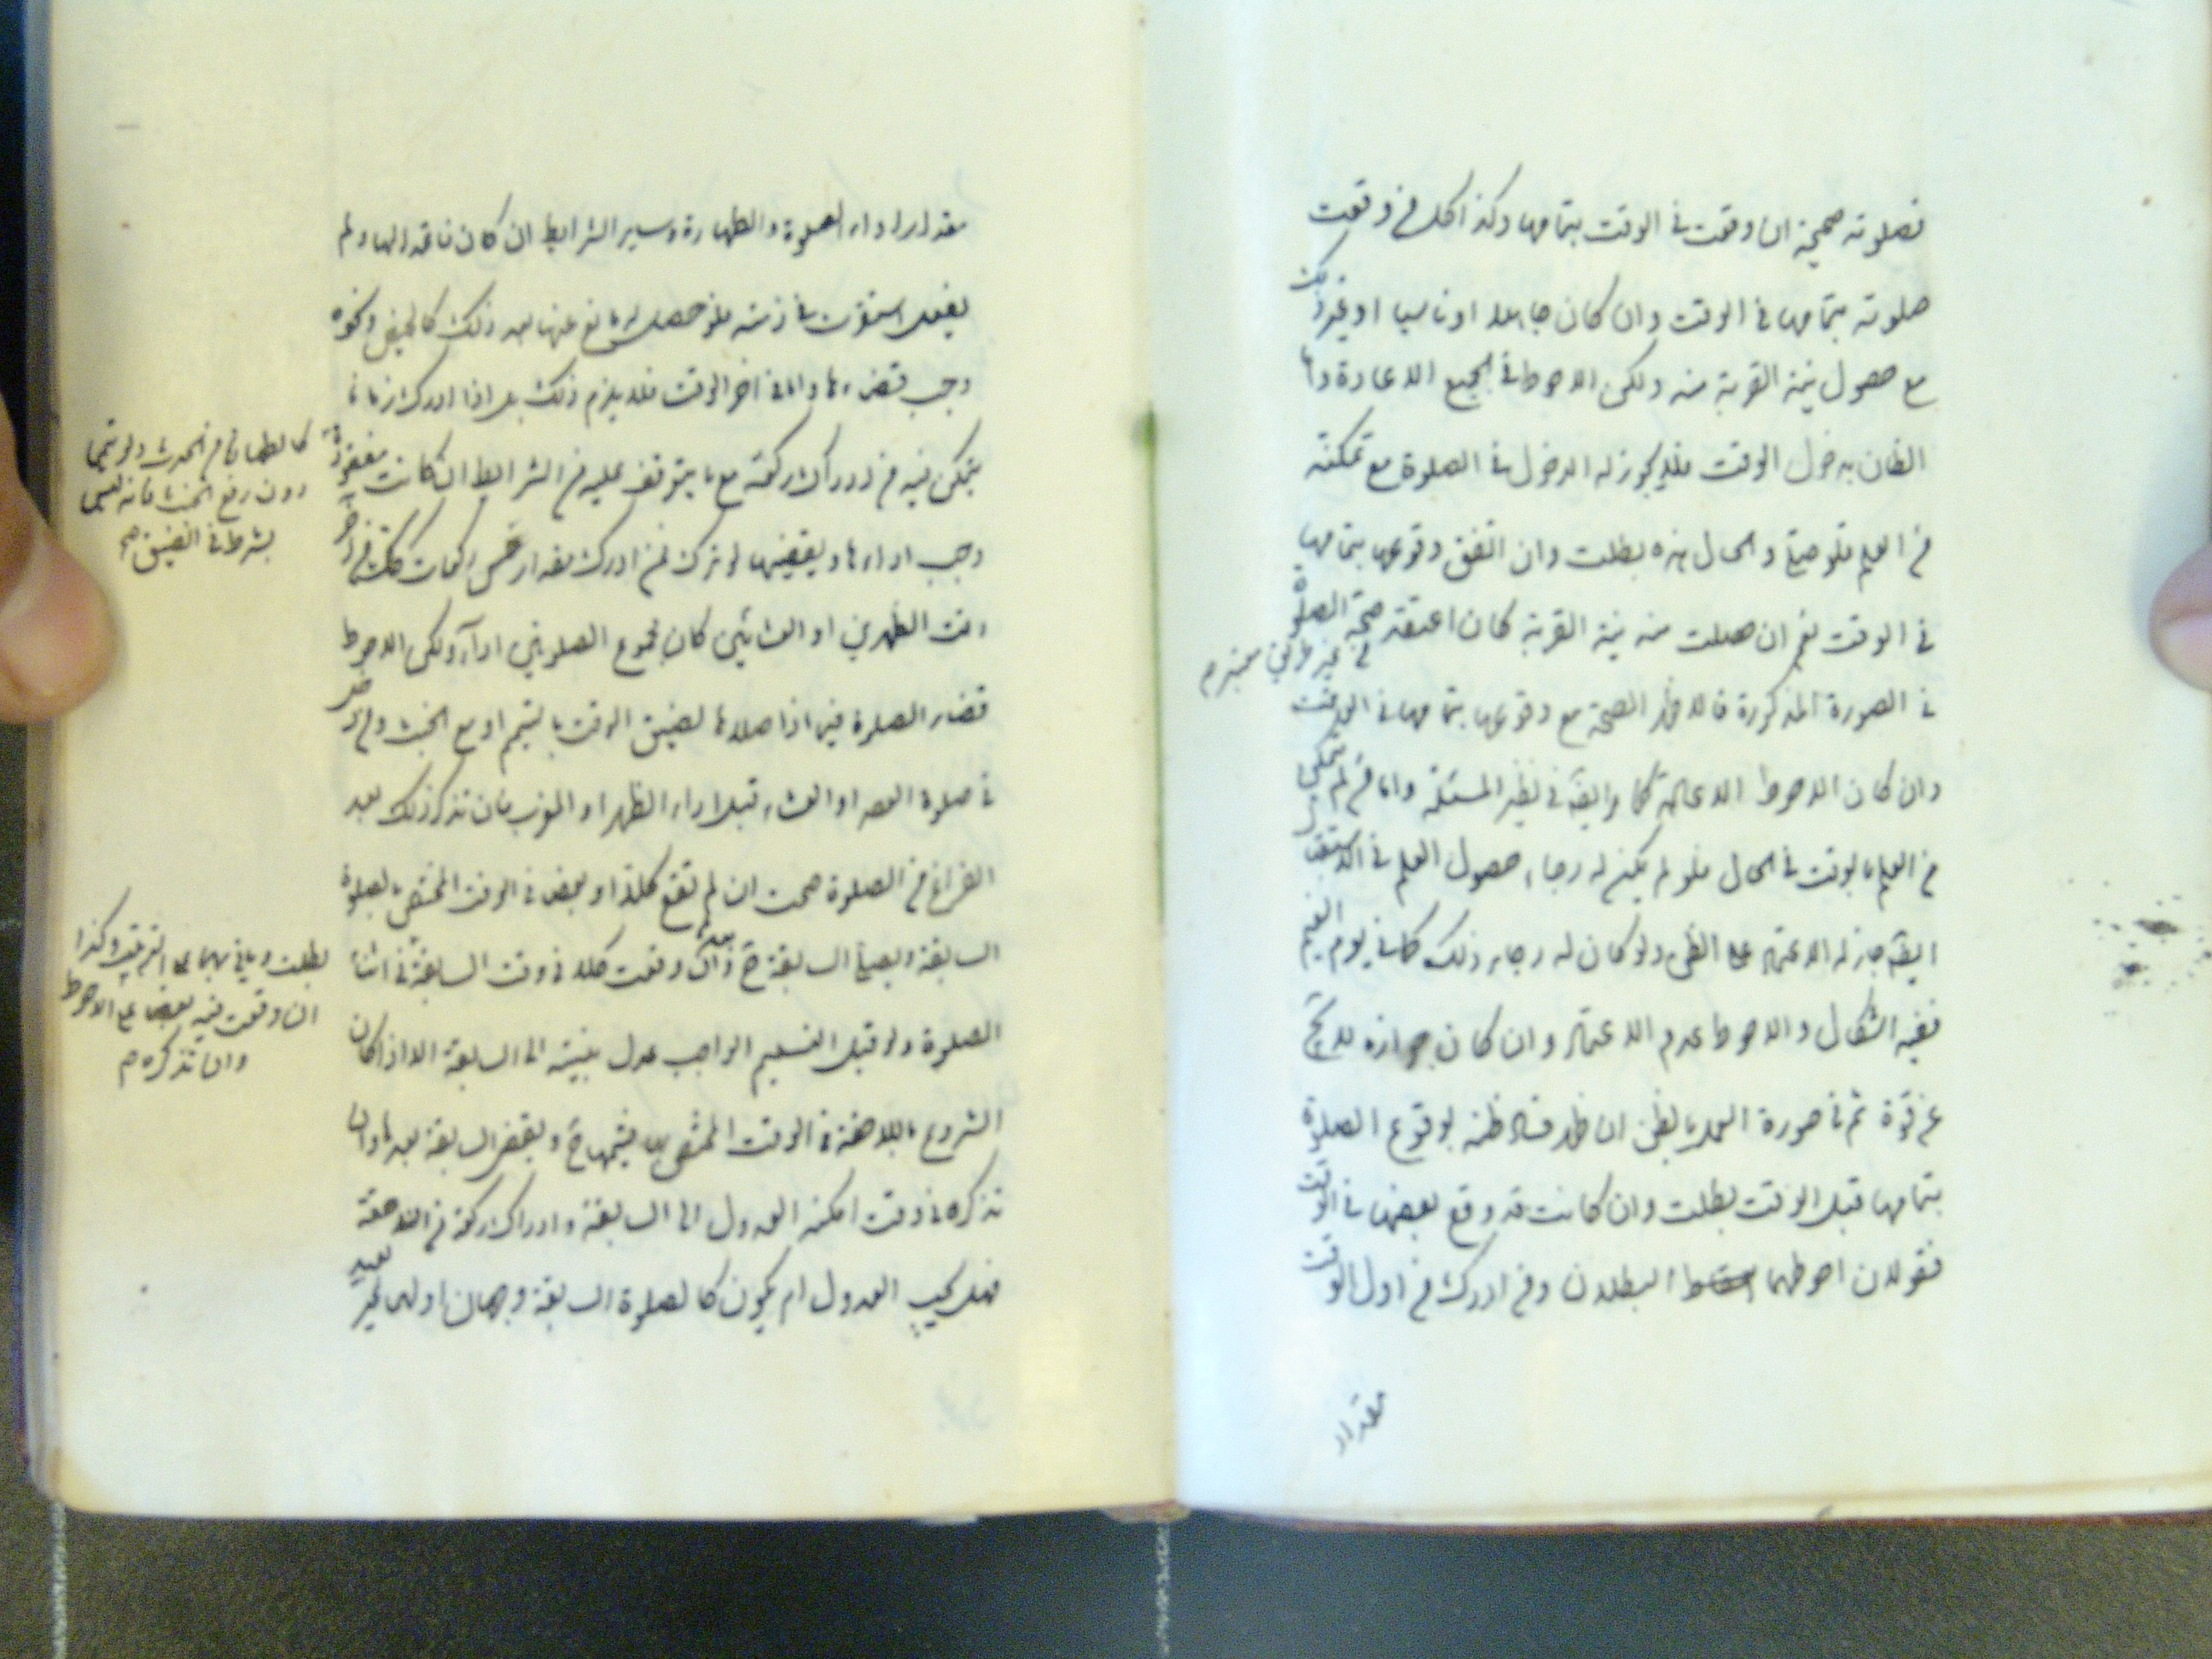 فصلوته صحيحة ان وقعت في الوقت بتمامها وكذا كل من وقعت
صلوته بتمامها في الوقت وان كان جاهلا او ناسيا او غير ذلك
مع حصول نية القربة منه ولكن الاحوط في الجميع الاعادة واما
الظان بدخول الوقت فلا يجوز له الدخول في الصلوة مع تمكنه
من العلم فلو صلى والحال هذه بطلت وان اتفق وقوعها بتمامها
في الوقت نعم ان حصلت منه نية القربة كان اعتقد صحة الصلوة
من غير طريق معتبر م
في الصورة المذكورة فالاقوى الصحة مع وقوعها بتمامها في الوقت
وان كان الاحوط الاعادة كما في نظير المسئلة واما من لم يتمكن
من العلم بالوقت في الحال فلو لم يكن له رجاء حصول العلم في
ايضا جاز له الاعتماد على الظن ولو كان له رجاء ذلك كما في يوم الغيم
ففيه اشكال والاحوط عدم الاعتماد وان كان جوازه لا يخ
عن قوة ثم في صورة العمل بالظن ان ظهر فساد ظنه بوقوع الصلوة
بتمامها قبل الوقت بطلت وان كانت قد وقع بعضها في الوقت
فقولان احوطهما البطلان ومن ادرك من اول الوقت
مقدار
مقدار اداء الصلوة والطهارة وساير الشرايط ان كان فاقد الها ولم
يفعل استقرت في ذمته فلو حصل له مانع عنها بعد ذلك كالحيض ونحوه
وجب قضاءها واما في اخر الوقت فلا يلزم ذلك بل اذا ادرك زمانا
يتمكن فيه من ادراك ركعة مع ما يتوقف عليه من الشرايط ان كانت مفقودة
كالطهارة من الحدث ولو تيمما
دون رفع الخبث فانه ليس
بشرط في الضيق م
وجب اداءها ويقضيها لو ترك فمن ادرك مقدار خمس ركعات من اخر
وقت الظهرين او العشائين كان مجموع الصلوتين اداء ولكن الاحوط
قضاء الصلوة فيما اذا صلاها لضيق الوقت بالتيمم او مع الخبث ومن دخل
في صلوة العصر او العشاء قبل اداء الظهر او المغرب فان تذكر ذلك بعد
الفراغ من الصلوة صحت ان لم تقع كلا او بعضا في الوقت المختص بالصلوة
السابقة ويصلي السابقة ح بعد وان وقعت كلا في وقت السابقة في اثناء
بطلت وياتي بهما على الترتيب وكذا
ان وقعت فيه بعضا على الاحوط
وان تذكره م
الصلوة ولو قبل التسليم الواجب عدل بنيته الى السابقة الا اذا كان
الشروع باللاحقة في الوقت المختص بها فيتمها ح ويقضي السابقة بعدها وان
تذكره في وقت امكنه العدول الى السابقة وادراك ركعة من اللاحقة
فهل يجب العدول ام يكون كالصلوة السابقة وجهان اولهما غير بعيد